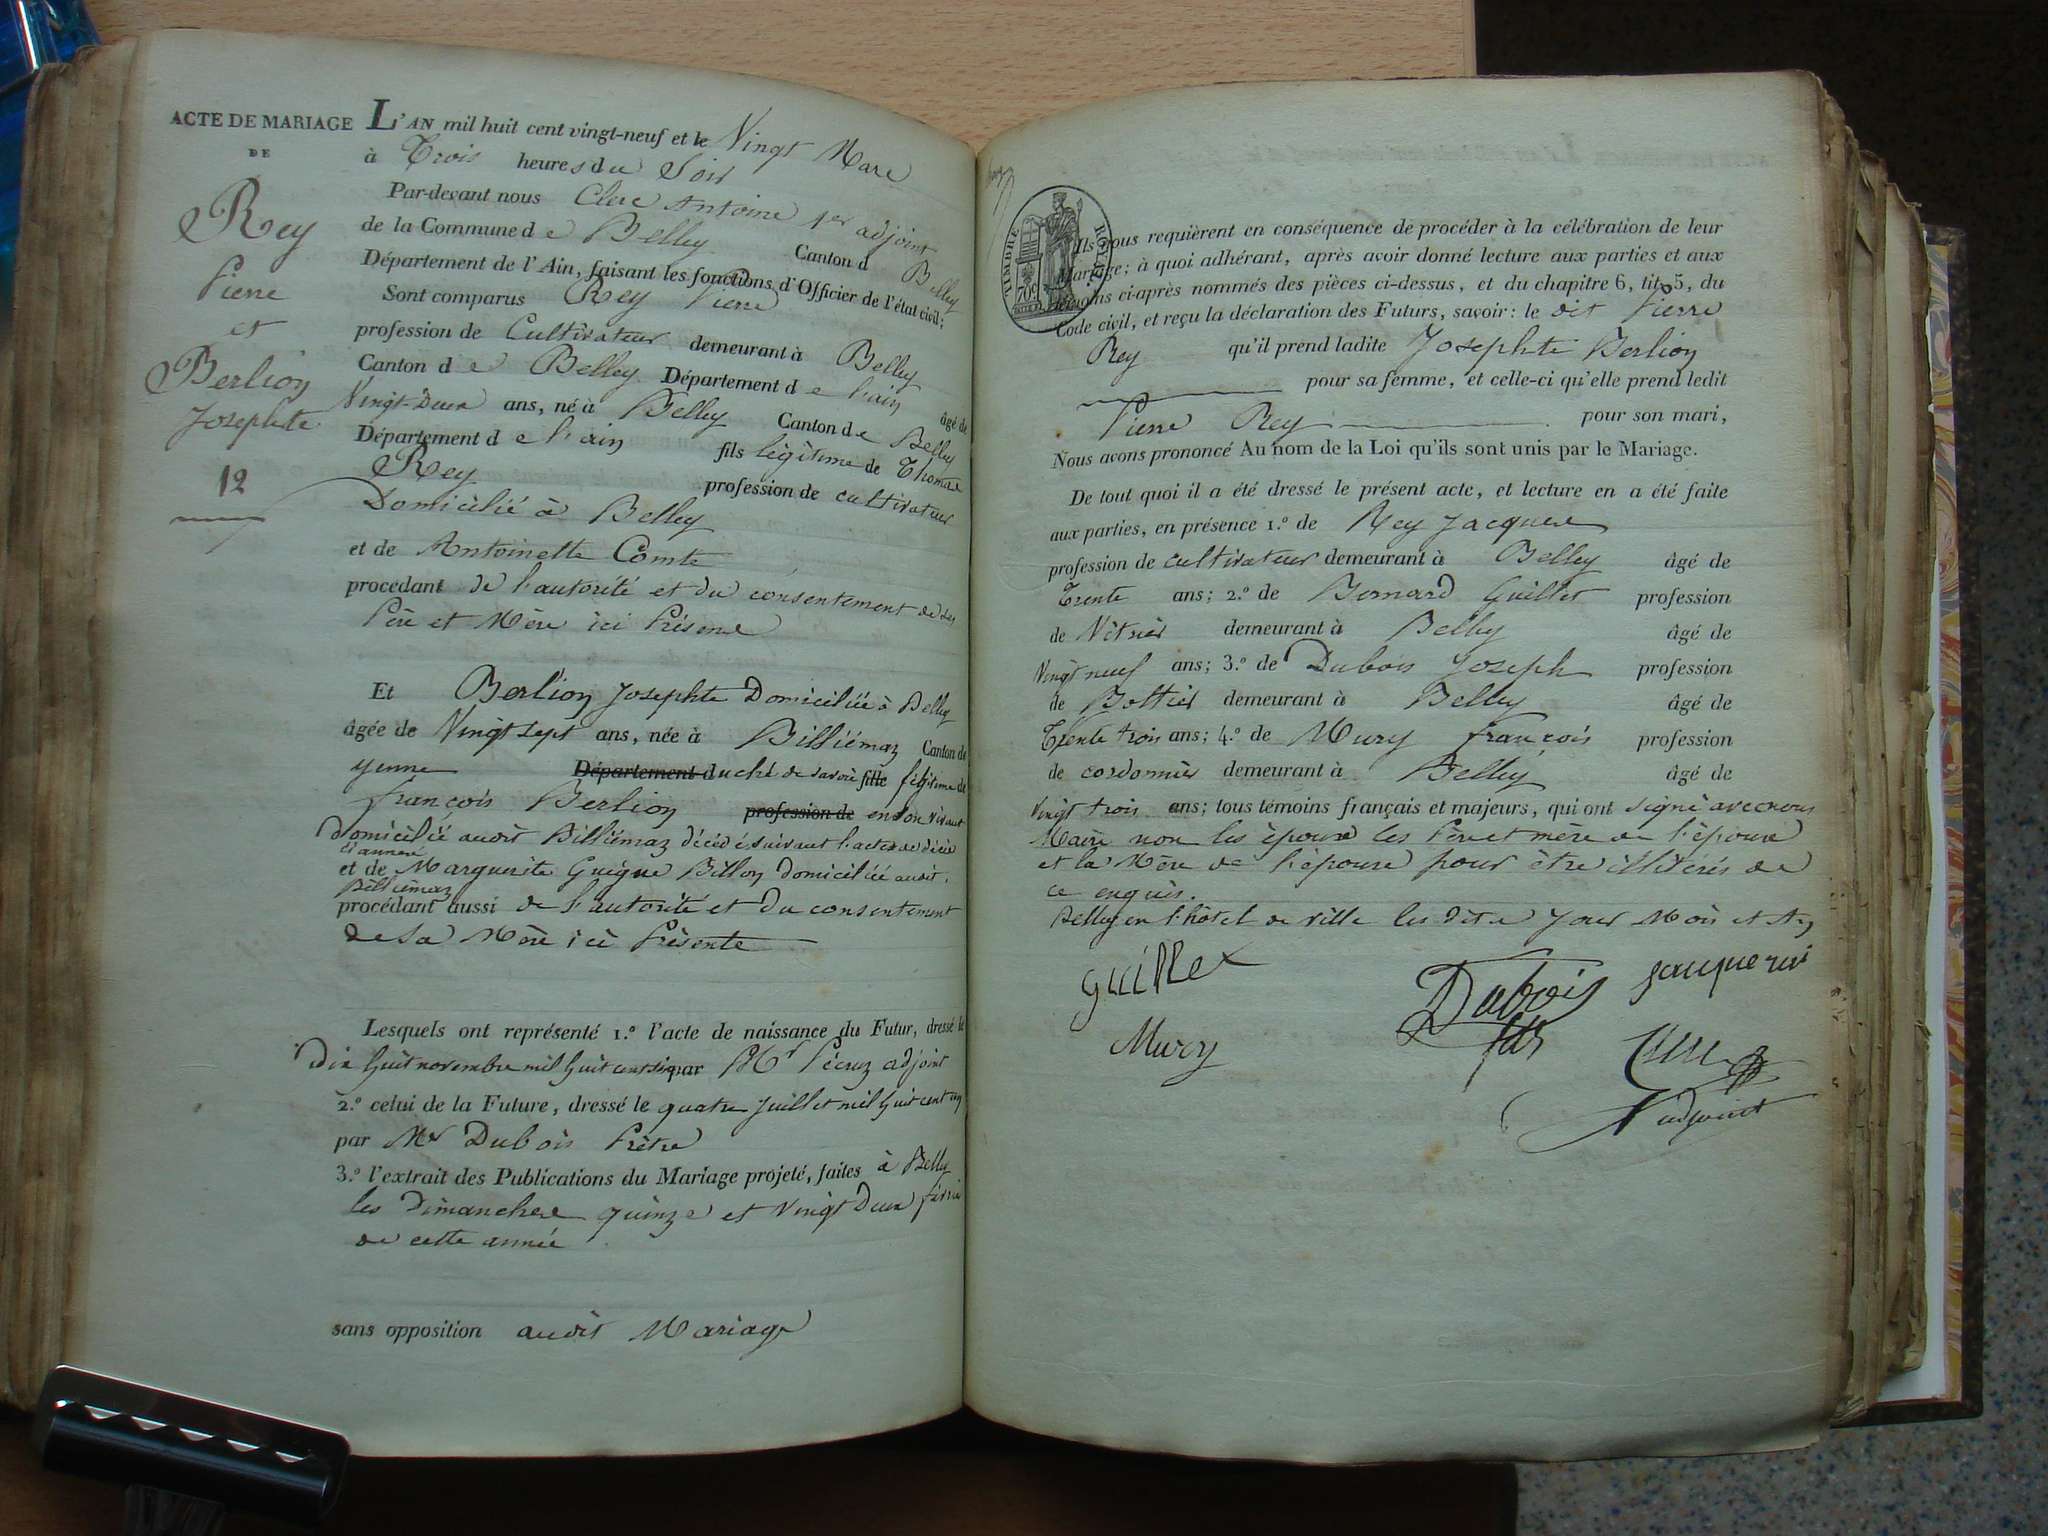 ACTE DE MARIAGE
DE
Rey
Pierre
et
Berlion
Josephte
12
L'AN mil huit cent vingt-neuf et le Vingt Mars
à Trois heures du Soir
Par-devant nous Clerc Antoine 1er adjoint
de la Commune de Belley Canton d Belley
Département de l'Ain, faisant les fonctions d'Officier de l'état civil;
Sont comparus Rey Pierre
profession de Cultivateur demeurant à Belley
Canton de Belley Département de l'ain âgé de
Vingt-Deux ans, né à Belley Canton de Belley
Département de l'ain fils légitime de Thomas
Rey profession de cultivateur
Domicilié à Belley
et de Antoinette Comte
procédant de l'autorité et du consentement de ses
Père et Mère ici Présens
Et Berlion Josephte Domiciliée à Belley
âgée de Vingt sept ans, née à Billiémaz Canton de
yenne Département duché de savoie fille légitime de
françois Berlion profession de en son vivant
domicilié audit Billiémaz décédé suivant l'acte de décès
ci annexé
et de Marguerite Guigue Billon domiciliée audit
Billiémaz
procédant aussi de l'autorité et du consentement
de sa Mère ici Présente
Lesquels ont représenté 1.º l'acte de naissance du Futur, dressé le
Dix huit novembre mil huit cent six par Mr Pécruz adjoint
2.º celui de la Future, dressé le quatre Juillet mil huit cent un
par Mr Dubois Prètre
3.º l'extrait des Publications du Mariage projeté, faites à Belley
les Dimanches quinze et Vingt Deux février
de cette année
sans opposition audit Mariage
TIMBRE ROYAL
70c
Ils nous requièrent en conséquence de procéder à la célébration de leur
Mariage; à quoi adhérant, après avoir donné lecture aux parties et aux
témoins ci-après nommés des pièces ci-dessus, et du chapitre 6, tit. 5, du
Code civil, et reçu la déclaration des Futurs, savoir: le dit Pierre
Rey qu'il prend ladite Josephte Berlion
pour sa femme, et celle-ci qu'elle prend ledit
Pierre Rey pour son mari,
Nous avons prononcé Au nom de la Loi qu'ils sont unis par le Mariage.
De tout quoi il a été dressé le présent acte, et lecture en a été faite
aux parties, en présence 1.º de Rey Jacques
profession de cultivateur demeurant à Belley âgé de
Trente ans; 2.º de Bernard Guillet profession
de Vitrier demeurant à Belley âgé de
Vingt neuf ans; 3.º de Dubois Joseph profession
de Bottier demeurant à Belley âgé de
Trente trois ans; 4.º de Mury françois profession
de cordonnier demeurant à Belley âgé de
Vingt trois ans; tous témoins français et majeurs, qui ont signé avec nous
Maire non les époux les Père et mère de l'époux
et la Mère de l'épouse pour être illitérés de
ce enquis.
Belley en l'hôtel de ville les dits Jour Mois et An
guillet
Dubois
fils
Mury
Clerc
adjoint